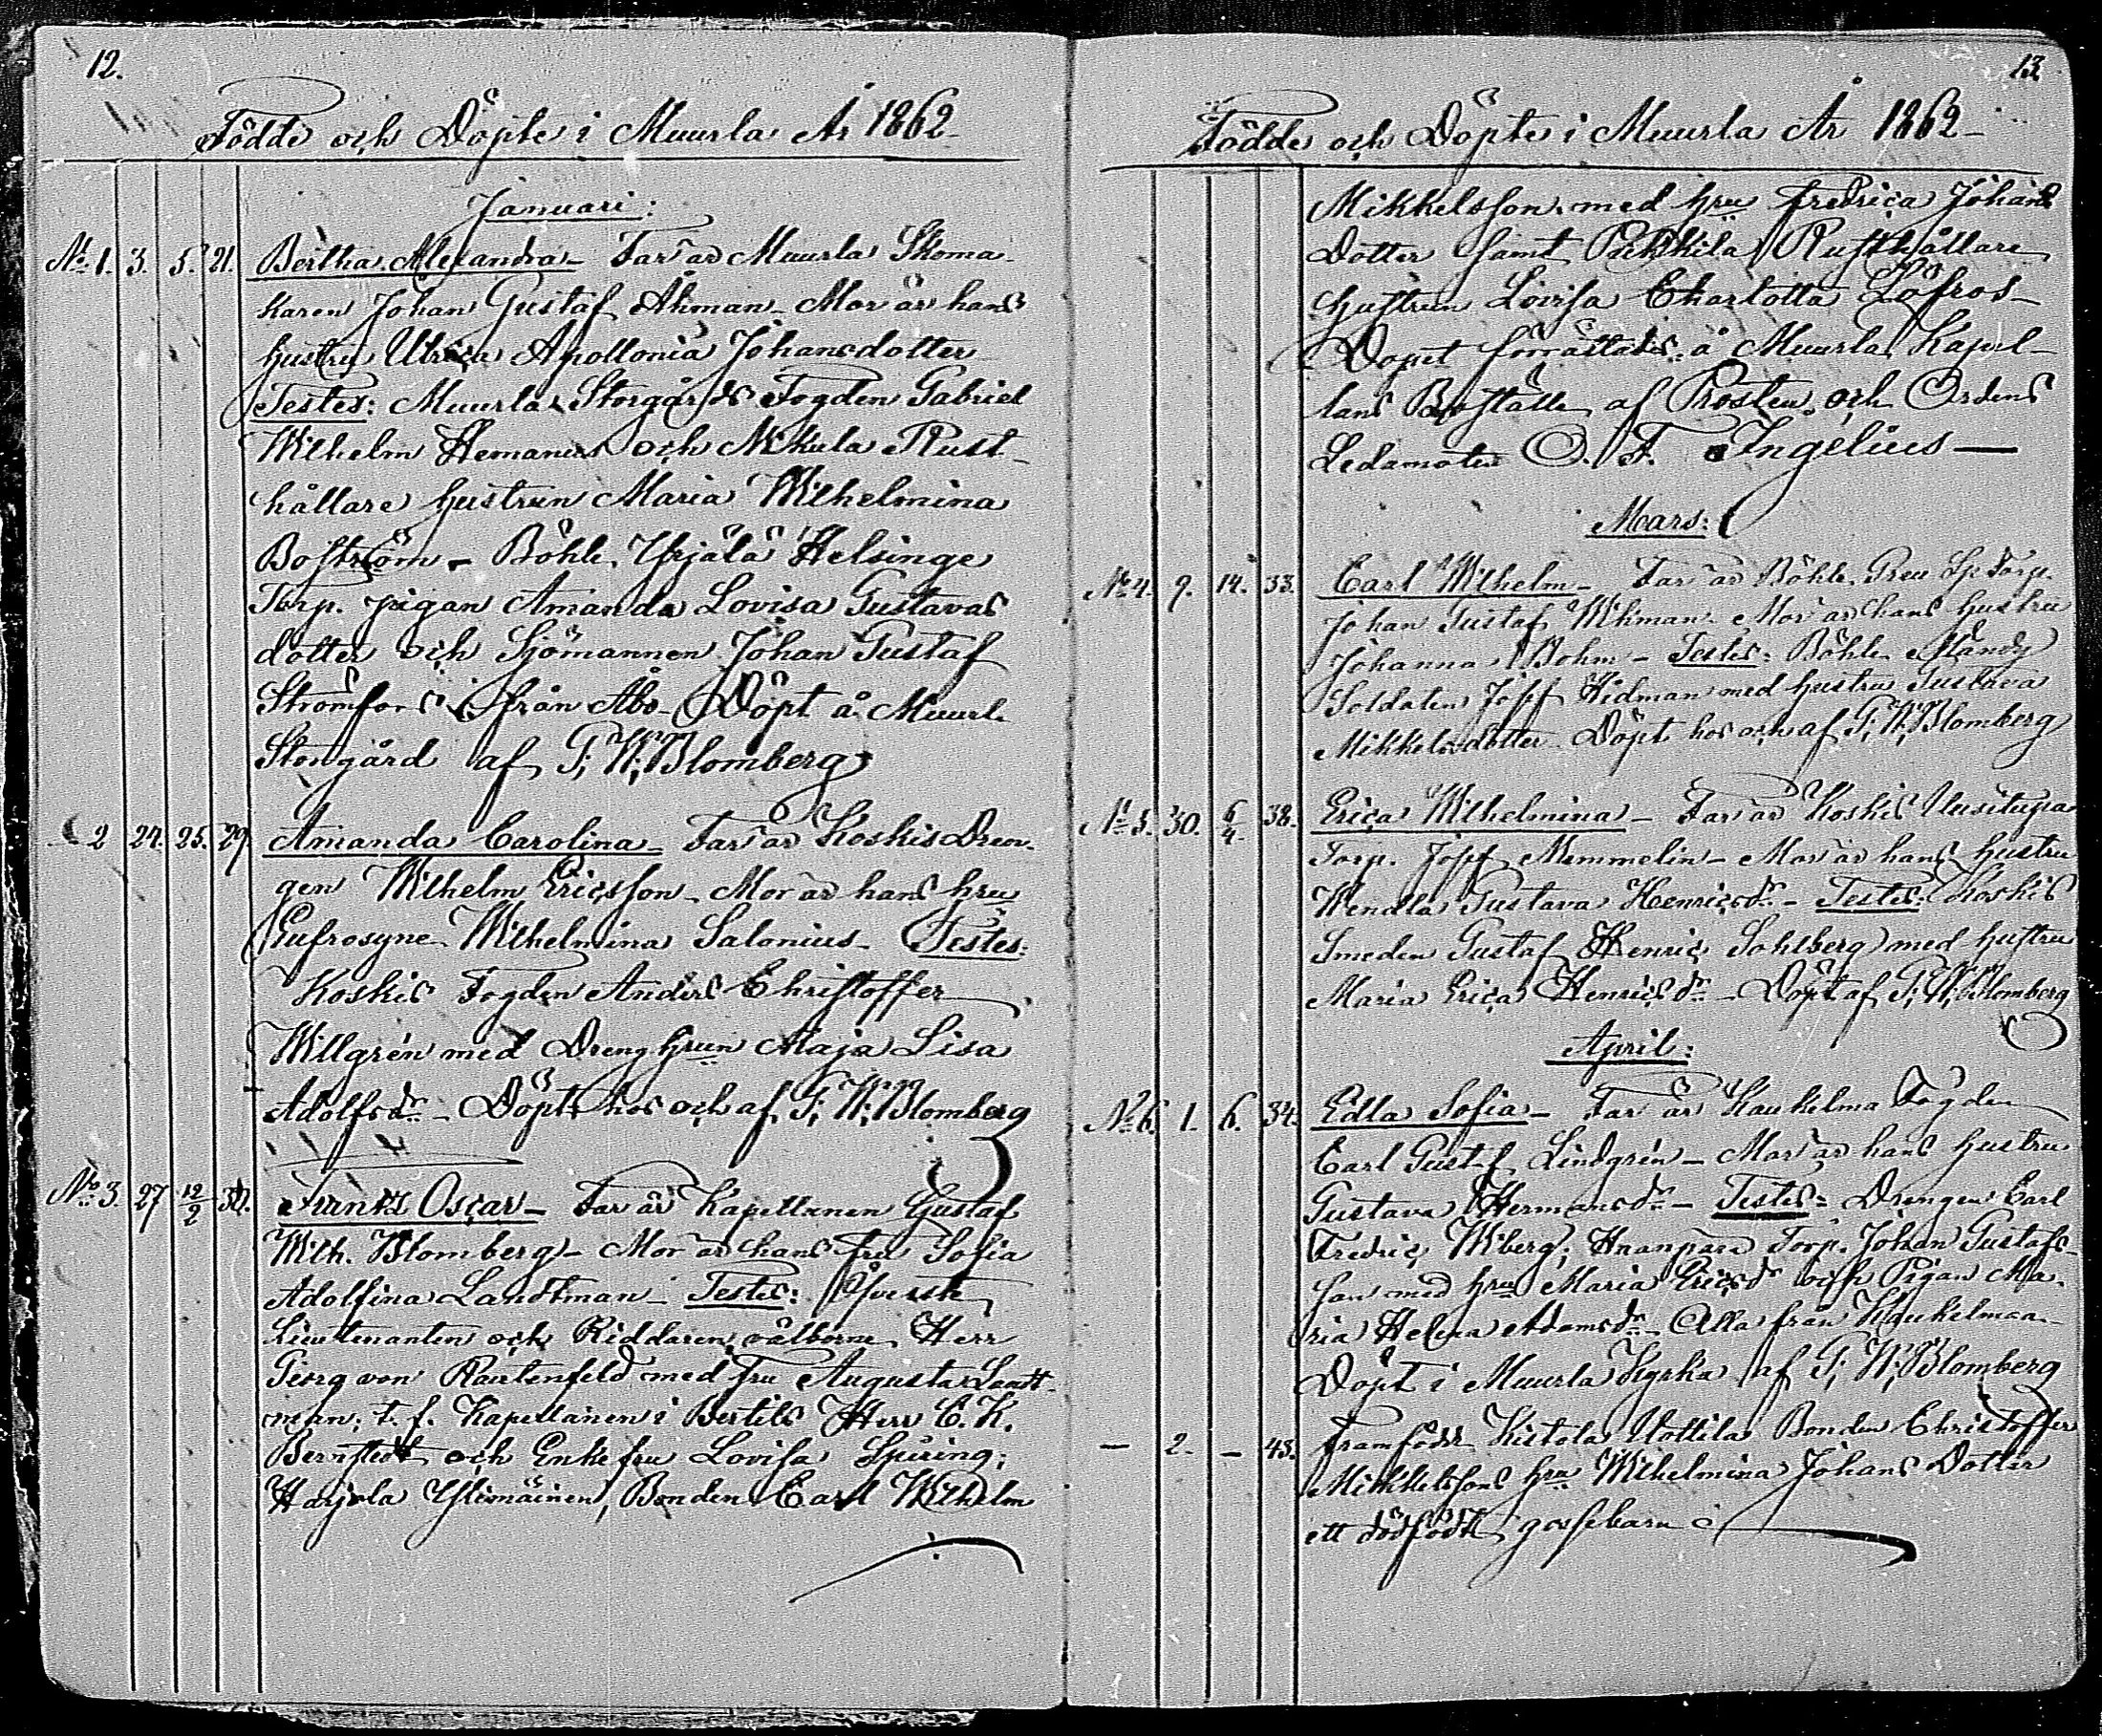 12.
Födde och Döpte i Muurla År 1862
Januari:
No 1. 3. 5. 21. Bertha Alexandra – Far är Muurla Skoma-
karen Johan Gustaf Åhman – Mor är hans
hustru Ulrica Apollonia Johansdotter
Testes: Muurla Storgårds Fogden Gabriel
Wilhelm Hemanus och Nikula Rust-
hållare hustrun Maria Wilhelmina
Boström – Böhle Yrjälä Helsinge
Torp. pigan Amanda Lovisa Gustavas
dotter och Sjömannen Johan Gustaf
Strömfors från Åbo – Döpt å Muurla
Storgård af G; W; Blomberg
2 24. 25. 29. Amanda Carolina – Far är Koskis Dren-
gen Wilhelm Ericsson – Mor är hans hru
Eufrosyne Wilhelmina Salonius – Testes:
Koskis Fogden Anders Christoffer
Willgrén med Dreng hrun Maja Lisa
Adolfsdr – Döpt hos och af G; W; Blomberg
No 3. 27 12/2 Frantz Oscar – Far är Kapellanen Gustaf
Wilh. Blomberg – Mor är hans Fru Sofia
Adolfina Landtman – Testes: Öfverste
Lieutenanten och Riddaren välborne Herr
Georg von Rautenfeld med Fru Augusta Landt-
man; t. f. Kapellanen i Bertils Herr C. K.
och Enkefru Lovisa Spåring;
Harjola Ylimäinen, Bonden Carl Wilhelm
13
Födde och Döpte i Muurla År 1862
Mikkelsson med hru Fredrica Johans
Dotter samt Rusthållare
hustrun Lovisa Charlotta Löfros –
Dopet förrättades å Muurla Kapel-
lans Boställe af Prosten och Ordens
Ledamoten O. F. Ingelius —
Mars:
No 4. 9. 14. 33. Carl Wilhelm – Far är Böhle Torp.
Johan Gustaf Wikman – Mor är hans hustru
Johanna Bohm – Testes: Böhle
Soldaten Josef Hidman med hustru Gustava
Mikkelsdotter – Döpt hos och af G; W; Blomberg
No 5. 30. 6/4. 38. Erica Wilhelmina – Far är Koskis Uusitupa
Torp. Josef Memmelin – Mor är hans hustru
Wendla Gustava Henricsdr – Testes: Koskis
Smeden Gustaf Henric Sohlberg med hustru
Maria Erica Henricsdr – Döpt af G; W; Blomberg
April:
No 6. 1. 6. 34. Edla Sofia – Far är Kaukelma Fogden
Carl Gustaf Lindgrén – Mor är hans hustru
Gustava Hermansdr – Testes: Drengen Carl
Fredric Wiberg; Torp. Johan Gustafs-
son med hru Maria Ericsdr och Pigan Ma-
ria Helena Adamsdr – Alla från Kaukelmaa –
Döpt i Muurla Kyrka af G; W; Blomberg
– 2. – 43. Framfödde Kistola Uottila Bonden Christoffer
Mikkelssons hru Wilhelmina Johans Dotter
ett dödfödt gossebarn